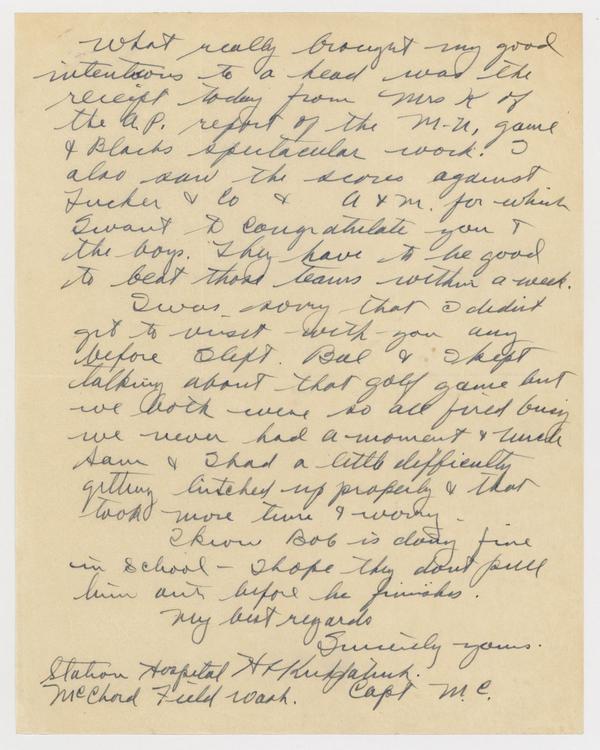 What really brought my good
intentions to a head was the
receipt today from Mrs K of
the A.P. report of the M-N, game
& Blacks spectacular work. I
also saw the scores against
Tucker & Co & A & M. for which
I want to congratulate you &
the boys. They have to be good
to beat those teams within a week.
I was sorry that I didn't
get to visit with you any
before I left. Bal & I kept
talking about that golf game but
we both were so all fired busy
we never had a moment & Uncle
Sam & I had a little difficulty
getting hitched up properly & that
took more time & worry.
I know Bob is doing fine
in School - I hope they dont pull
him out before he finishes.
My best regards
Sincerely yours.
Station Hospital
McChord Field Wash. Capt M.C.